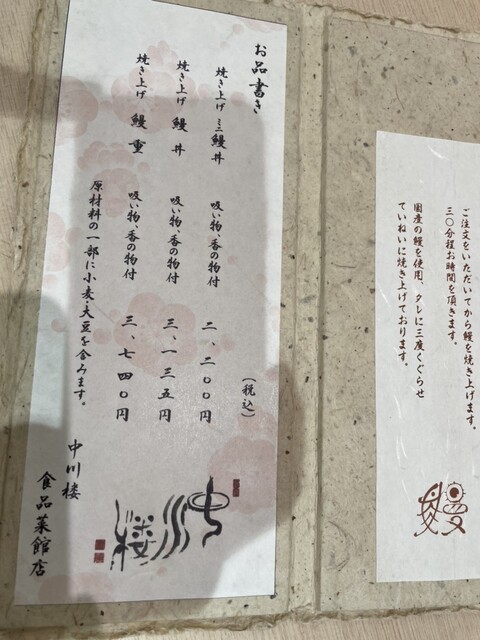 ご注文をいただいてから鰻を焼き上げます。
三〇分程お時間を頂きます。
国産の鰻を使用、タレに三度くぐらせ
ていねいに焼き上げております。
鰻
お品書き
(税込)
焼き上げ ミニ鰻丼 吸い物、香の物付 二、二〇〇円
焼き上げ 鰻丼 吸い物、香の物付 三、一三五円
焼き上げ 鰻重 吸い物、香の物付 三、七四〇円
原材料の一部に小麦・大豆を含みます。
中川楼
中川楼
食品菜館店